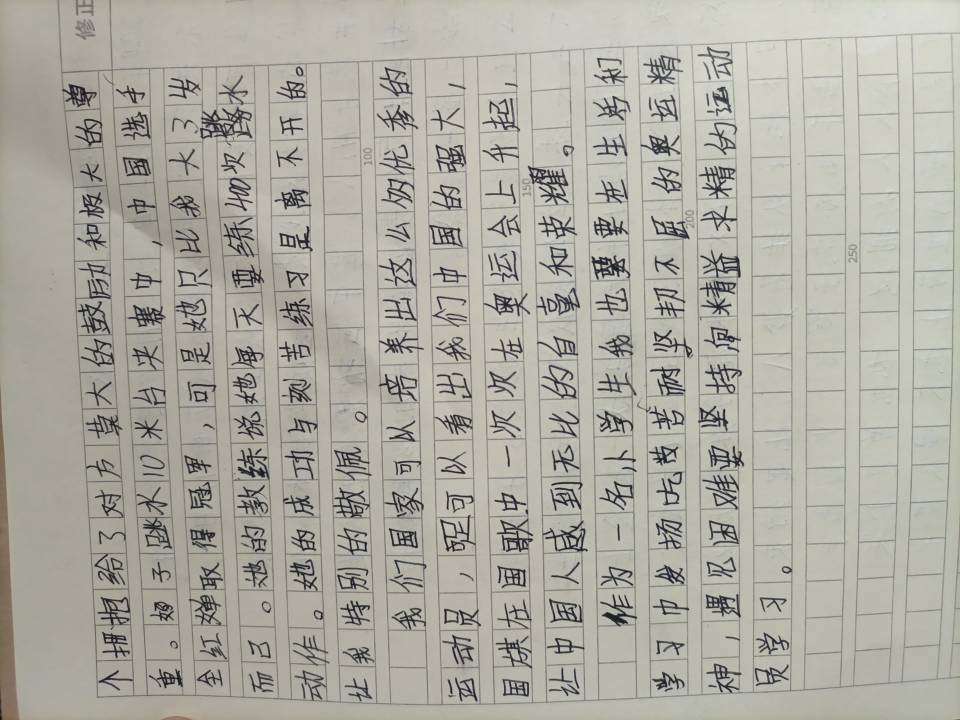 修正
个拥抱给了对方莫大的鼓励和极大的尊
重。女子跳水10米台决赛中，中国选手
全红婵取得冠军，可是她只比我大3岁
而已。她的教练说她每天要练400次跳水
动作。她的成功与刻苦练习是离不开的。
让我特别的敬佩。
我们国家可以培养出这么多优秀的
运动员，足可以看出我们中国的强大，
国旗在国歌中一次次在奥运会上升起，
让中国人感到无比的自豪和荣耀。
作为一名小学生我也要在生活和
学习中发扬吃苦耐劳坚韧不屈的奥运精
神，遇见困难要坚持向精益求精的运动
员学习。
100
150
200
250